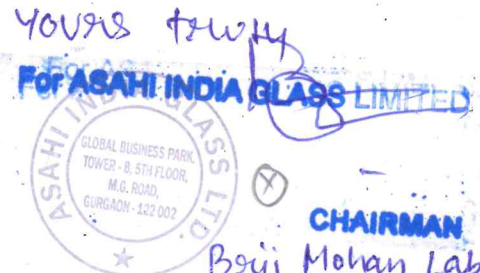 Yours truly
For ASAHI INDIA GLASS LIMITED
ASAHI INDIA GLASS LTD.
GLOBAL BUSINESS PARK,
TOWER - B, 5TH FLOOR,
M.G. ROAD,
GURGAON - 122 002
CHAIRMAN
Brij Mohan Lab